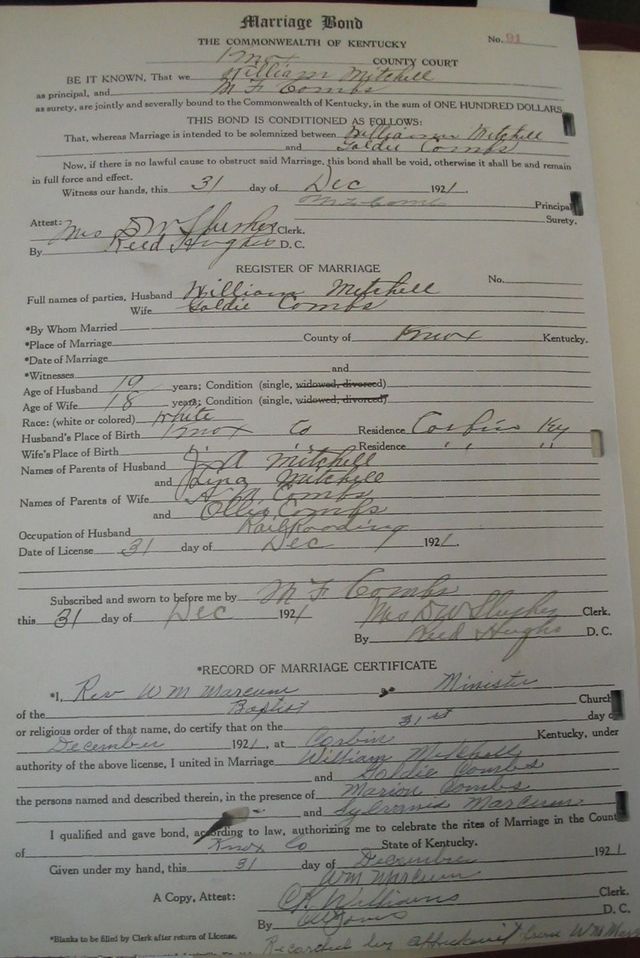 Marriage Bond
THE COMMONWEALTH OF KENTUCKY
No. 91
Knox COUNTY COURT
BE IT KNOWN, That we William Mitchell
as principal, and M F Combs
as surety, are jointly and severally bound to the Commonwealth of Kentucky, in the sum of ONE HUNDRED DOLLARS
THIS BOND IS CONDITIONED AS FOLLOWS:
That, whereas Marriage is intended to be solemnized between William Mitchell
and Goldie Combs
Now, if there is no lawful cause to obstruct said Marriage, this bond shall be void, otherwise it shall be and remain
in full force and effect.
Witness our hands, this 31 day of Dec 1921.
M F Combs Principal
Surety.
Attest:
Mrs D W Slusher Clerk.
By Reed Hughes D. C.
REGISTER OF MARRIAGE
Full names of parties, Husband William Mitchell No.
Wife Goldie Combs
*By Whom Married
*Place of Marriage County of Knox Kentucky.
*Date of Marriage
*Witnesses and
Age of Husband 19 years; Condition (single, widowed, divorced)
Age of Wife 18 years; Condition (single, widowed, divorced)
Race: (white or colored) White
Husband's Place of Birth Knox Co Residence Corbin Ky
Wife's Place of Birth " " Residence " "
Names of Parents of Husband J. A Mitchell
and Mitchell
Names of Parents of Wife Combs
and Ollie Combs
Occupation of Husband Railroading
Date of License 31 day of Dec 1921.
Subscribed and sworn to before me by M F Combs
this 31 day of Dec 1921 Mrs D W Slusher Clerk.
By Reed Hughes D. C.
*RECORD OF MARRIAGE CERTIFICATE
*I, Rev W M Marcum, Minister
of the Baptist Church
or religious order of that name, do certify that on the 31st day of
December 1921, at Corbin Kentucky, under
authority of the above license, I united in Marriage William Mitchell
and Goldie Combs
the persons named and described therein, in the presence of Marion Combs
and Marcum
I qualified and gave bond, according to law, authorizing me to celebrate the rites of Marriage in the Count
of Knox Co State of Kentucky.
Given under my hand, this 31 day of December 1921
Wm Marcum
A Copy, Attest: Williams Clerk.
By Jones D. C.
*Blanks to be filled by Clerk after return of License.
Recorded by affidavit from W M Mar